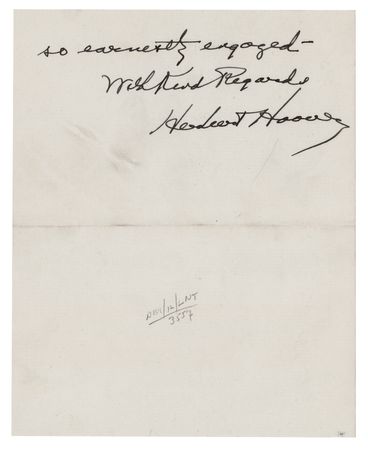 so earnestly engaged-
With Kind Regards
Herbert Hoover
3557